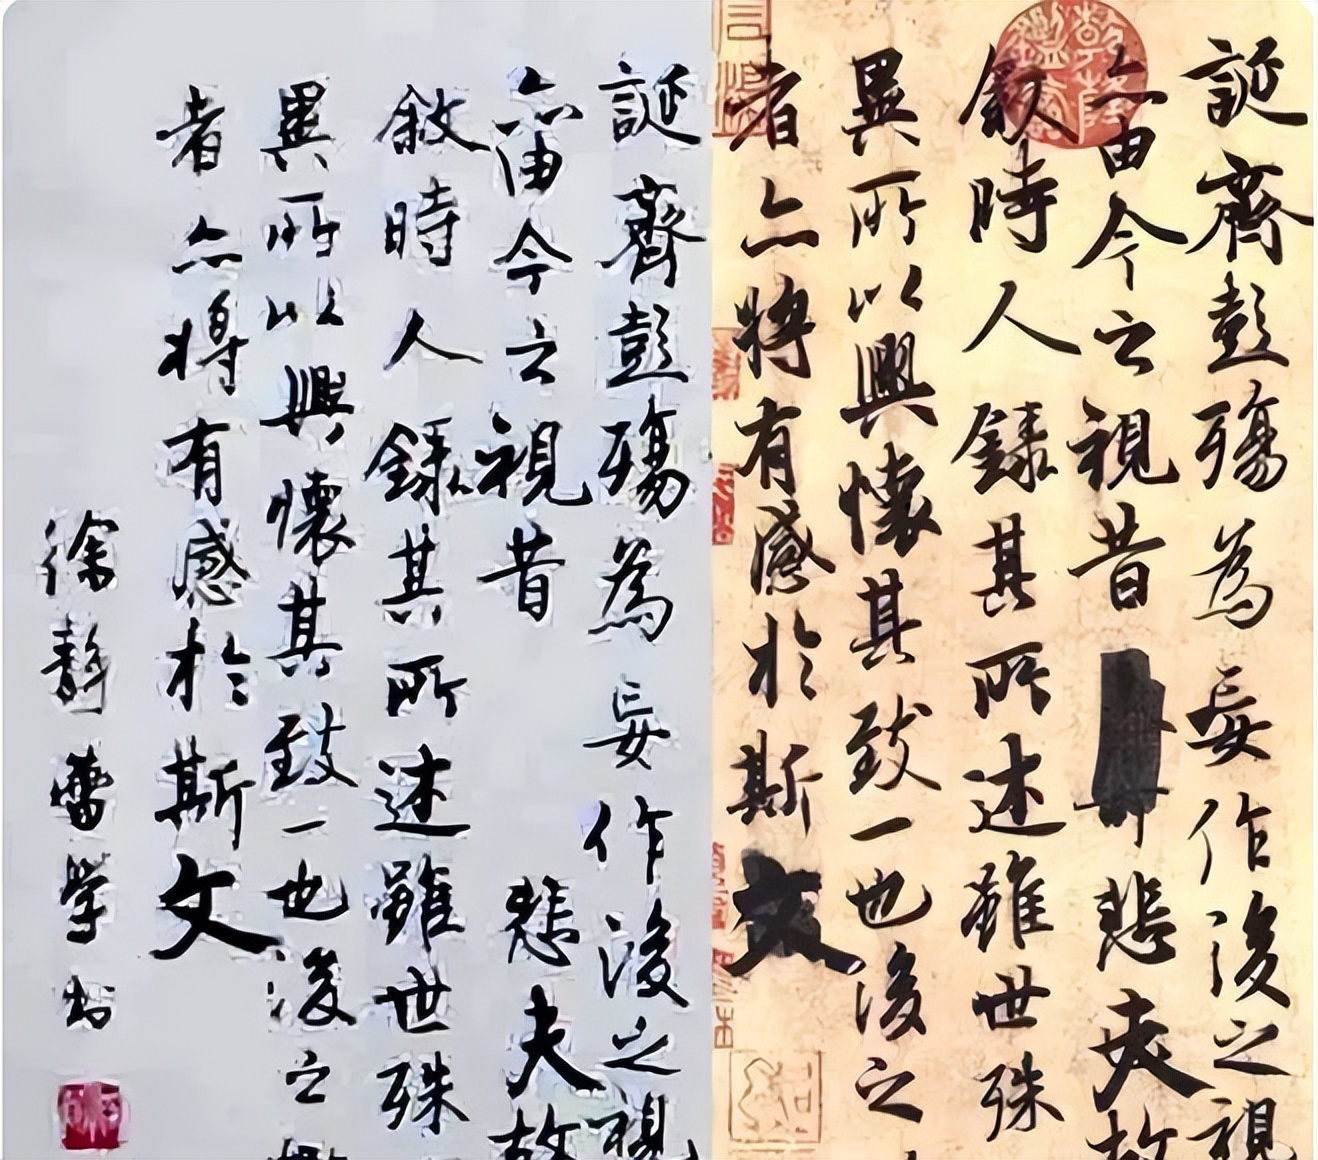 誕齊彭殤為妄作後之視
亦由今之視昔悲夫故
叙時人錄其所述雖世殊
異所以興懷其致一也後之
者亦將有感於斯文
乾隆鑑賞
誕齊彭殤為妄作後之視
亦由今之視昔悲夫故
敘時人錄其所述雖世殊
異所以興懷其致一也後之
者亦將有感於斯文
徐静蕾学书